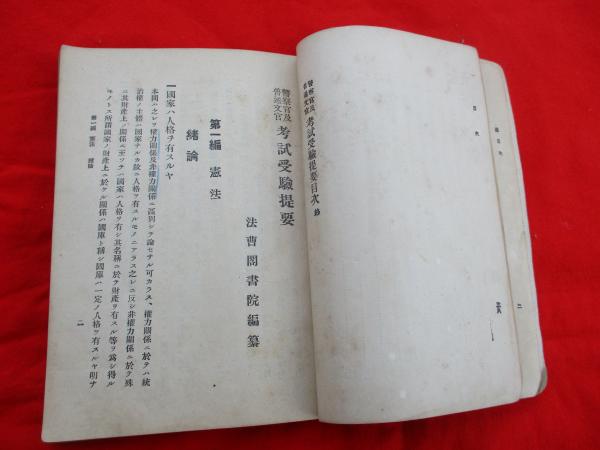 警察官及
普通文官 考試受驗提要目次 終
警察官及
普通文官 考試受驗提要
法曹閣書院編纂
第一編 憲法
緒論
一國家ハ人格ヲ有スルヤ
本問ハ之レヲ權力關係及非權力關係ニ區別シテ論セサル可カラス、權力關係ニ於テハ統
治權ノ主體ハ國家ナルカ故ニ人格ヲ有スルモノニアラス之レニ反シ非權力關係ニ於テ殊
ニ其財產上ノ關係ニ至ツテハ國家ハ人格ヲ有シ其名稱ニ於テ財產ヲ有スル等ヲ爲シ得ル
モノトス所謂國家ノ財產上ニ於ケル關係ハ國庫ト稱シ國庫ハ一定ノ人格ヲ有スルヤ明ナ
第一編 憲法 緒論
一